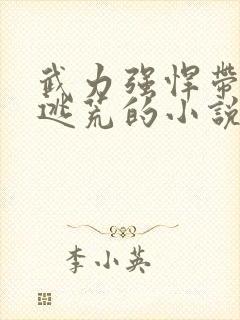 武力强悍带
逃荒的小說
李小英